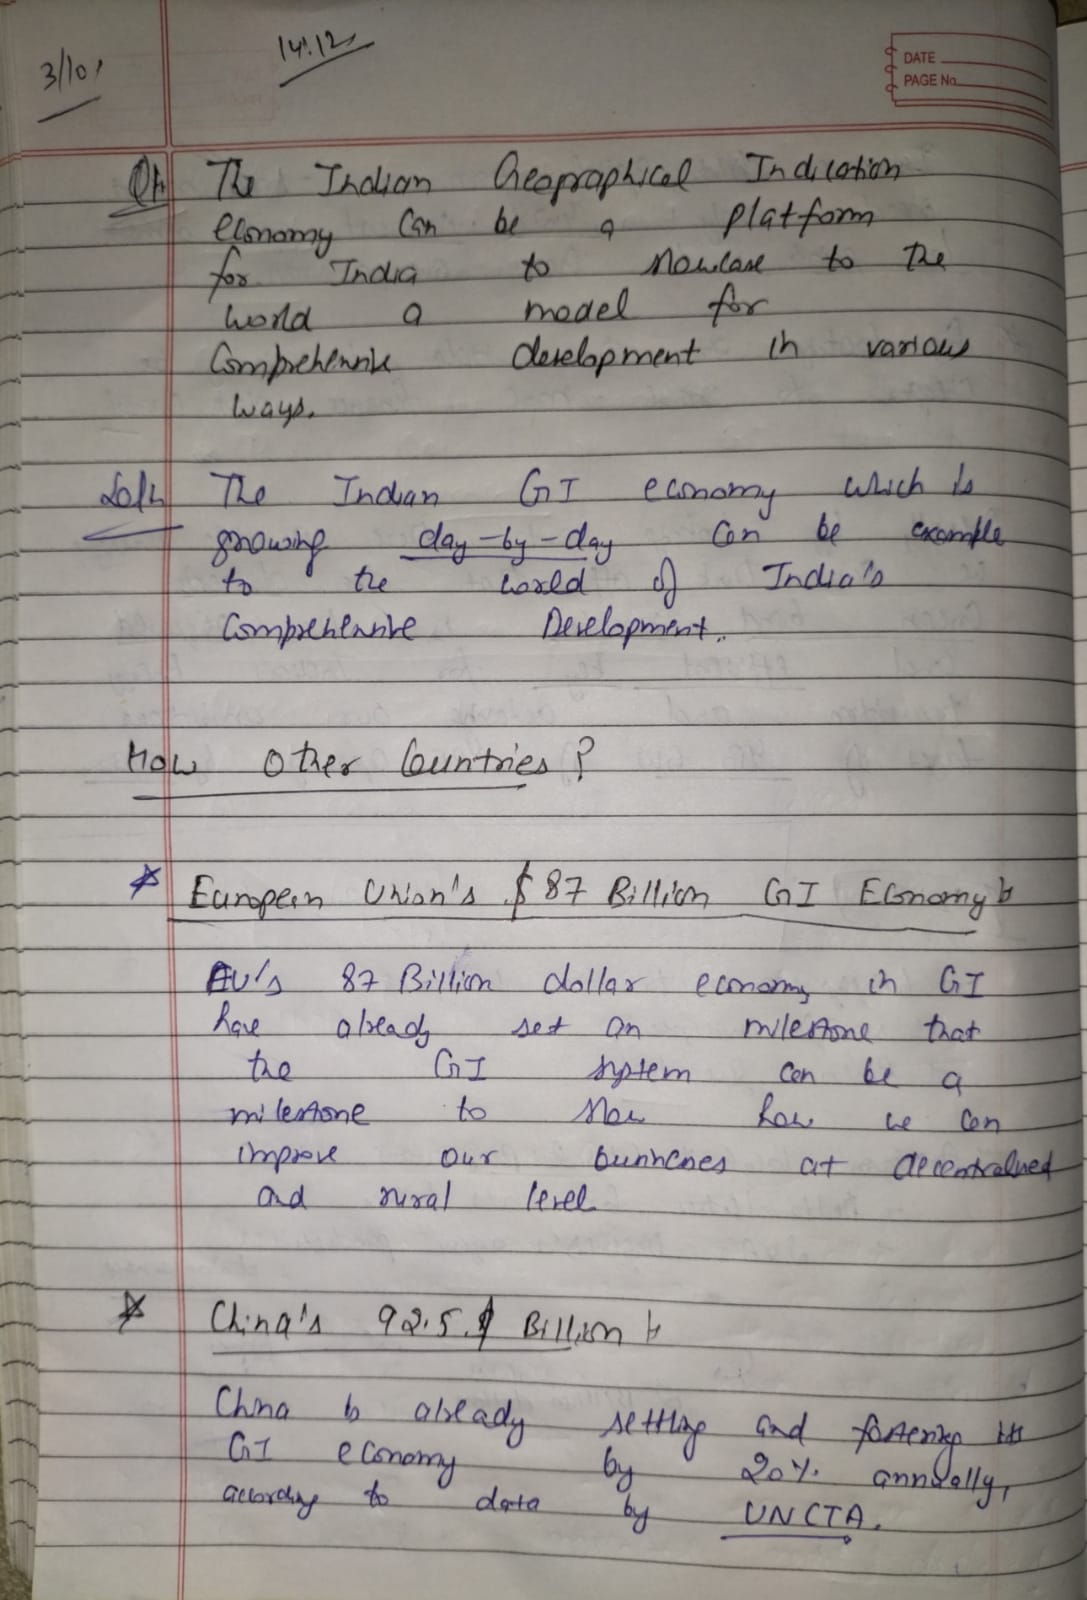 3/10,
14.12
DATE
PAGE No.
Qn The Indian Geographical Indication
economy can be a platform
for India to showcase to the
world a model for
Comprehensive development in various
ways.
Soln The Indian GI economy which is
growing day-by-day can be example
to the world of India's
Comprehensive Development.
How Other Countries?
European Union's $87 Billion GI Economy
EU's 87 Billion dollar economy in GI
have already set an milestone that
the GI system can be a
milestone to show how we can
improve our at decentralised
and rural level
China's 92.5 $ Billion
China is already setting and fostering its
GI economy by 20% annually,
according to data by UNCTA.